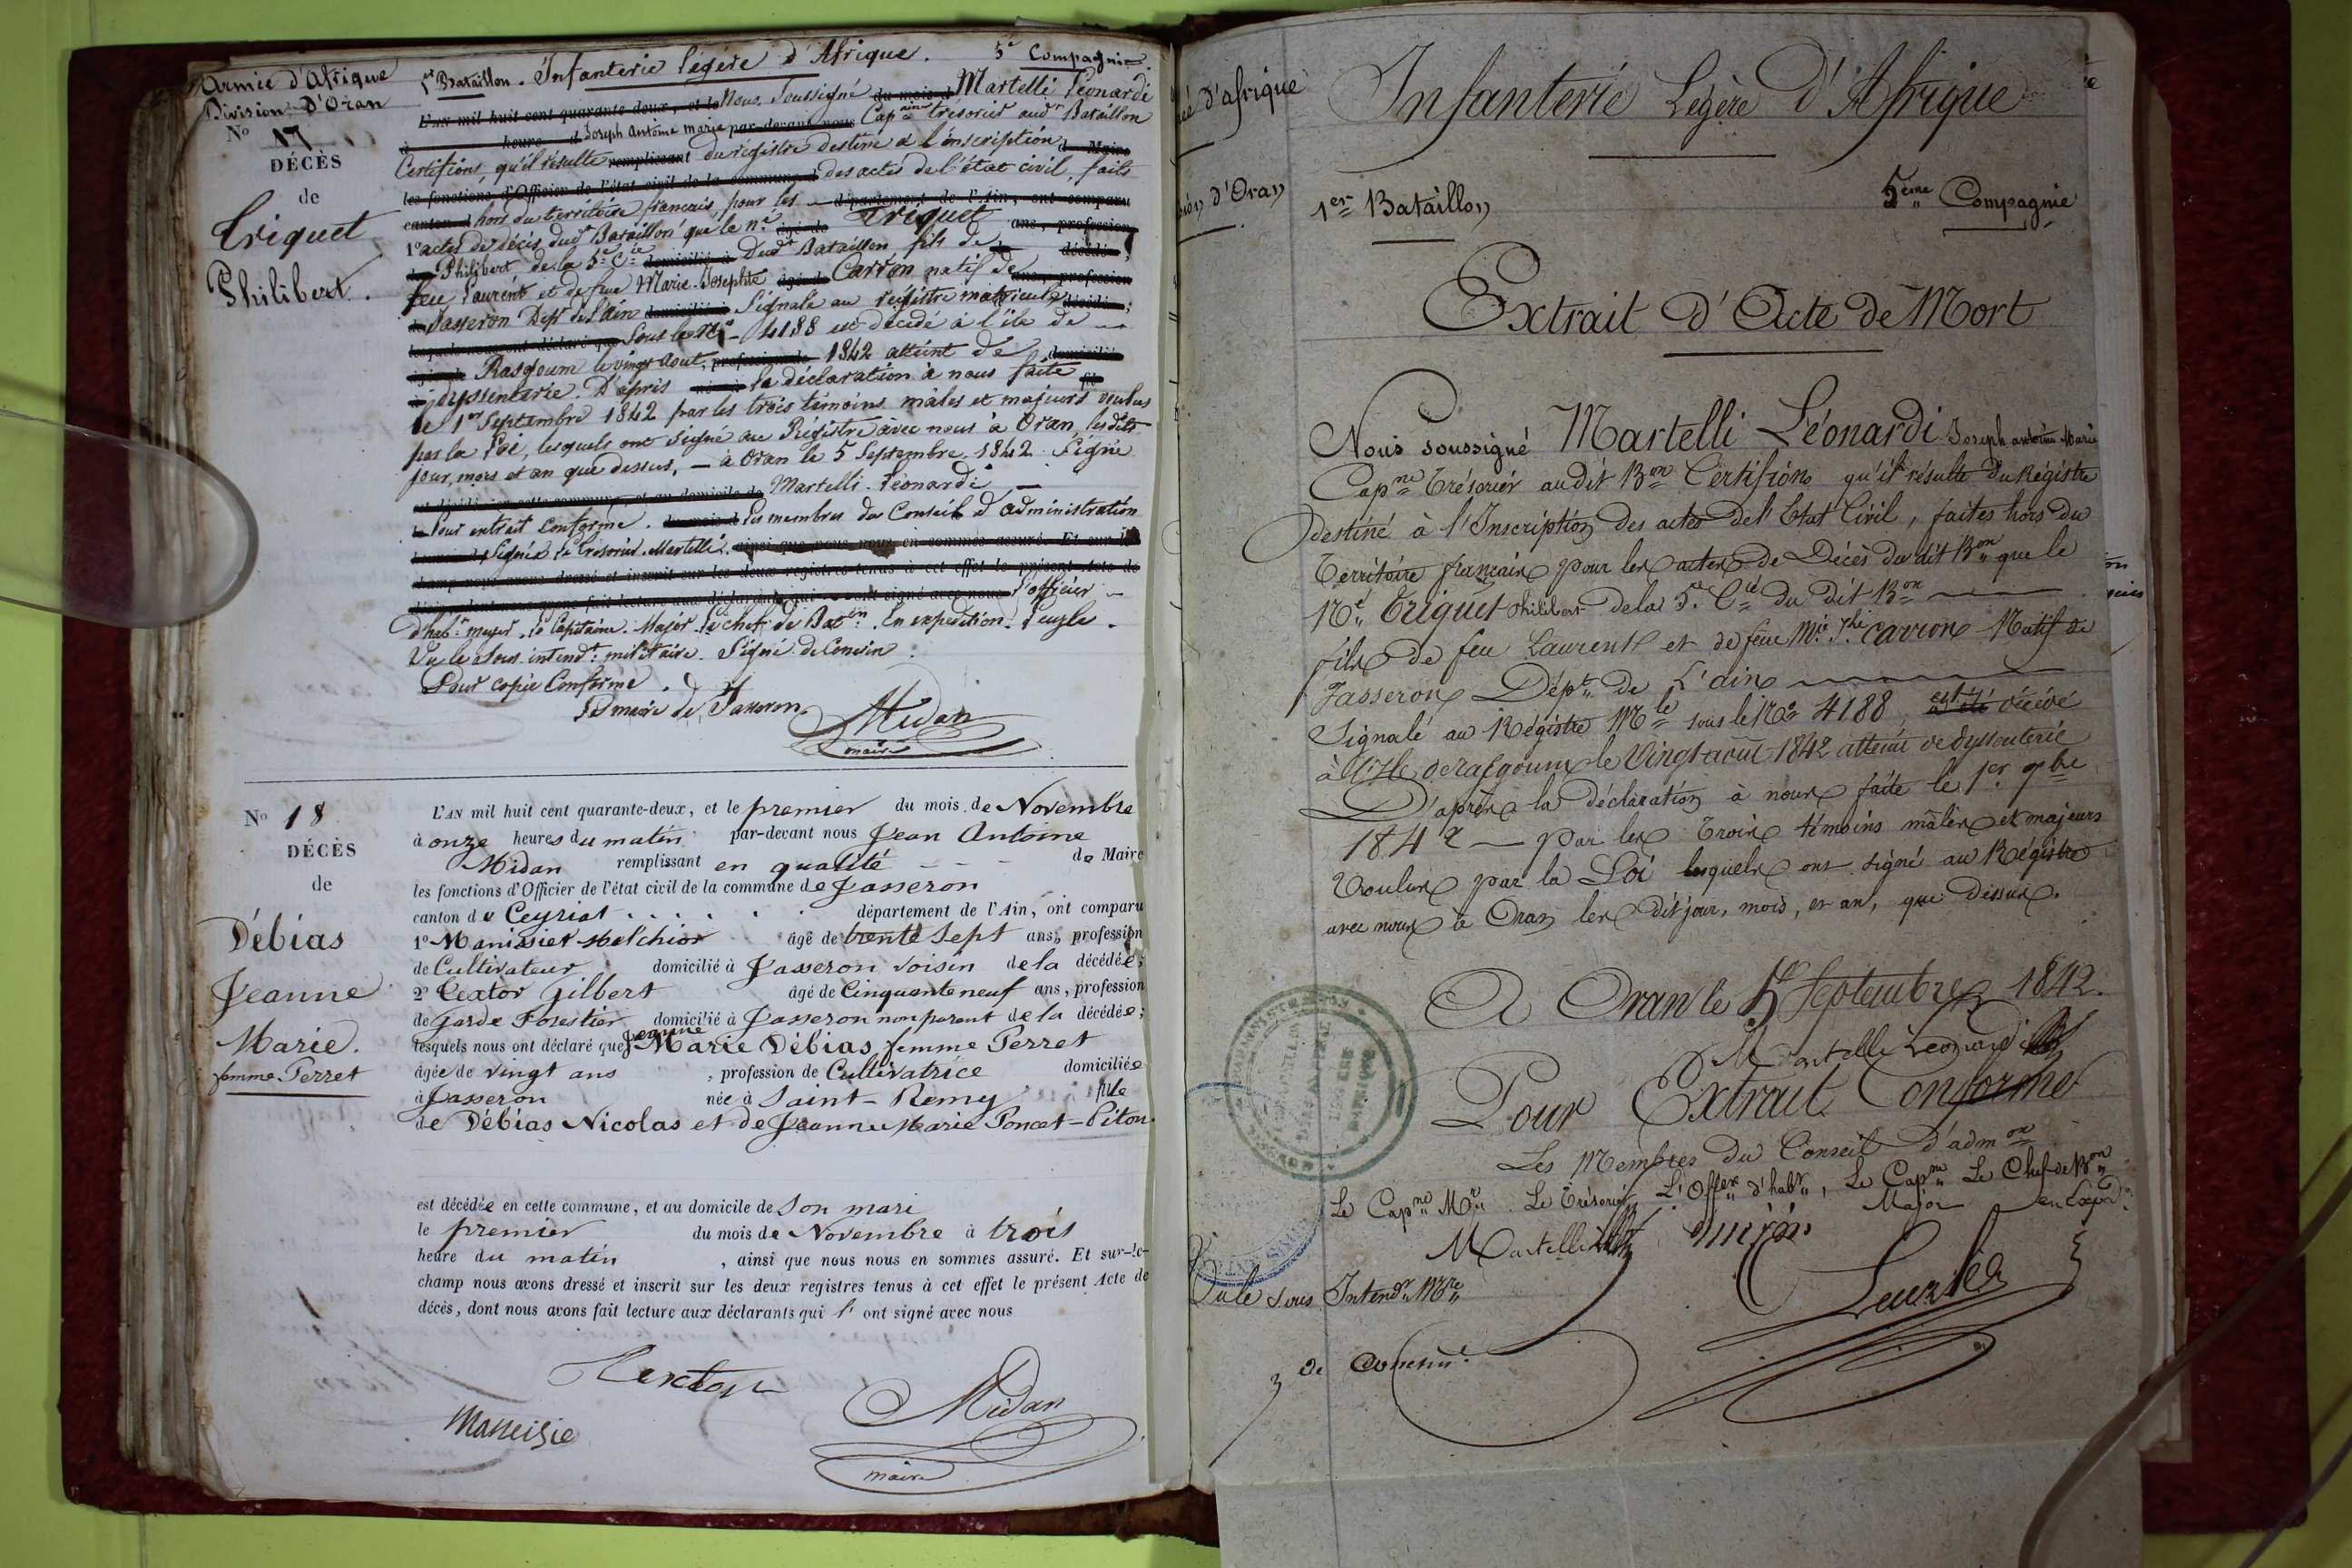 Armée d'Afrique
Division d'Oran
No 17
DÉCÈS
de
Triquet
Philibert.
1er Bataillon. Infanterie légère d'Afrique. 5e Compagnie.
L'AN mil huit cent quarante-deux, et le Nous Soussigné du mois d Martelli Léonardi
à heure d Joseph Antoine Marie par-devant nous Capne trésorier aud.t Bataillon
Certifions, qu'il résulte remplissant du régistre destiné à l'inscription d Maire
les fonctions d'Officier de l'état civil de la commune d des actes de l'état civil, faits
canton d hors du territoire français, pour les département de l'Ain, ont comparu
1o actes de décès dud.t Bataillon que le né. âgé de Triquet ans, profession
de Philibert de la 5e Cie domicilié à Dud.t Bataillon fils de décédé ;
feu Laurent et de feue Marie-Josephte âgé de Carron natif de ans, profession
Jasseron Dépt de l'Ain domicilié à Signalé au régistre matricule décédé ;
lesquels nous ont déclaré que Sous le No 4188 est décédé à l'île de
âgé de Rasgoum le vingt Aout, profession de 1842 atteint de domicilié
à dyssenterie. D'après né à la déclaration à nous faite fil
le 1er Septembre 1842 par les trois témoins mâles et majeurs voulus
par la Loi, lesquels ont signé au Régistre avec nous à Oran, les dits
jour, mois et an que dessus, — à Oran le 5 Septembre 1842. Signé
est décédé en cette commune, et au domicile de Martelli-Léonardi —
le Pour extrait Conforme. du mois d Les membres du Conseil d'administration
Signé le Trésorier Martelli. ainsi que nous nous en sommes assuré. Et sur-le-
champ nous avons dressé et inscrit sur les deux registres tenus à cet effet le présent Acte de
décès, dont nous avons fait lecture aux déclarants qui ont signé avec nous L'officier
d'habt le Capitaine Major. Le chef de Baton. En expédition. Leuzle.
Vu le Sous intendt militaire. Signé de Concin.
Pour copie Conforme.
Le maire de Jasseron.
Midan
maire
No 18
DÉCÈS
de
Débias
Jeanne
Marie.
femme Perret
L'AN mil huit cent quarante-deux, et le premier du mois de Novembre
à onze heures du matin par-devant nous Jean Antoine
Midan remplissant en qualité de Maire
les fonctions d'Officier de l'état civil de la commune de Jasseron
canton de Ceyriat . . . . . département de l'Ain, ont comparu
1o Manissier Melchior âgé de trente Sept ans, profession
de Cultivateur domicilié à Jasseron voisin de la décédée ;
2o Textor Gilbert âgé de Cinquante neuf ans, profession
de Garde Forestier domicilié à Jasseron non parent de la décédée ;
lesquels nous ont déclaré que Jeanne Marie Débias femme Perret
âgée de vingt ans , profession de Cultivatrice domiciliée
à Jasseron née à Saint-Remy fille
de Débias Nicolas et de Jeanne Marie Poncet-Piton.
est décédée en cette commune, et au domicile de Son mari
le premier du mois de Novembre à trois
heure du matin , ainsi que nous nous en sommes assuré. Et sur-le-
champ nous avons dressé et inscrit sur les deux registres tenus à cet effet le présent Acte de
décès, dont nous avons fait lecture aux déclarants qui l' ont signé avec nous
Textor
Midan
maire
d'afrique
d'Oran
Infanterie Légère d'Afrique
1er Bataillon 5ème Compagnie
Extrait d'Acte de Mort
Nous soussigné Martelli Léonardi Joseph antoine Marie
Capne Trésorier audit Bon Certifions qu'il résulte du Régistre
destiné à l'Inscription des actes de l'Etat Civil, faites hors du
Territoire français pour les actes de Décès du dit Bon que le
Né Triquet Philibert de la 5e Cie du dit Bon
fils de feu Laurent et de feue Mie Jhe Carron Natif de
Jasseron Dépt de L'ain
Signalé au Régistre Mle sous le No 4188, a été est décédé
à l'isle de rasgoum le Vingt août 1842 atteint de dyssenterie
D'après la déclaration à nous faite le 1er 7bre
1842 — par les trois témoins mâles et majeurs
Voulus par la Loi lesquels ont signé au Régistre
avec nous à Oran les dit jour, mois, et an, que dessus.
A Oran le 5 Septembre 1842.
Martelli Leonardi
Pour Extrait Conforme
Les Membres du Conseil d'admon
Le Capne Le Trésorier L'Offer d'habt, Le Capne Major Le Chef de Bon en Expédn
Martelli
Leuzle
Vu le Sous Intendt Mre
de Concin